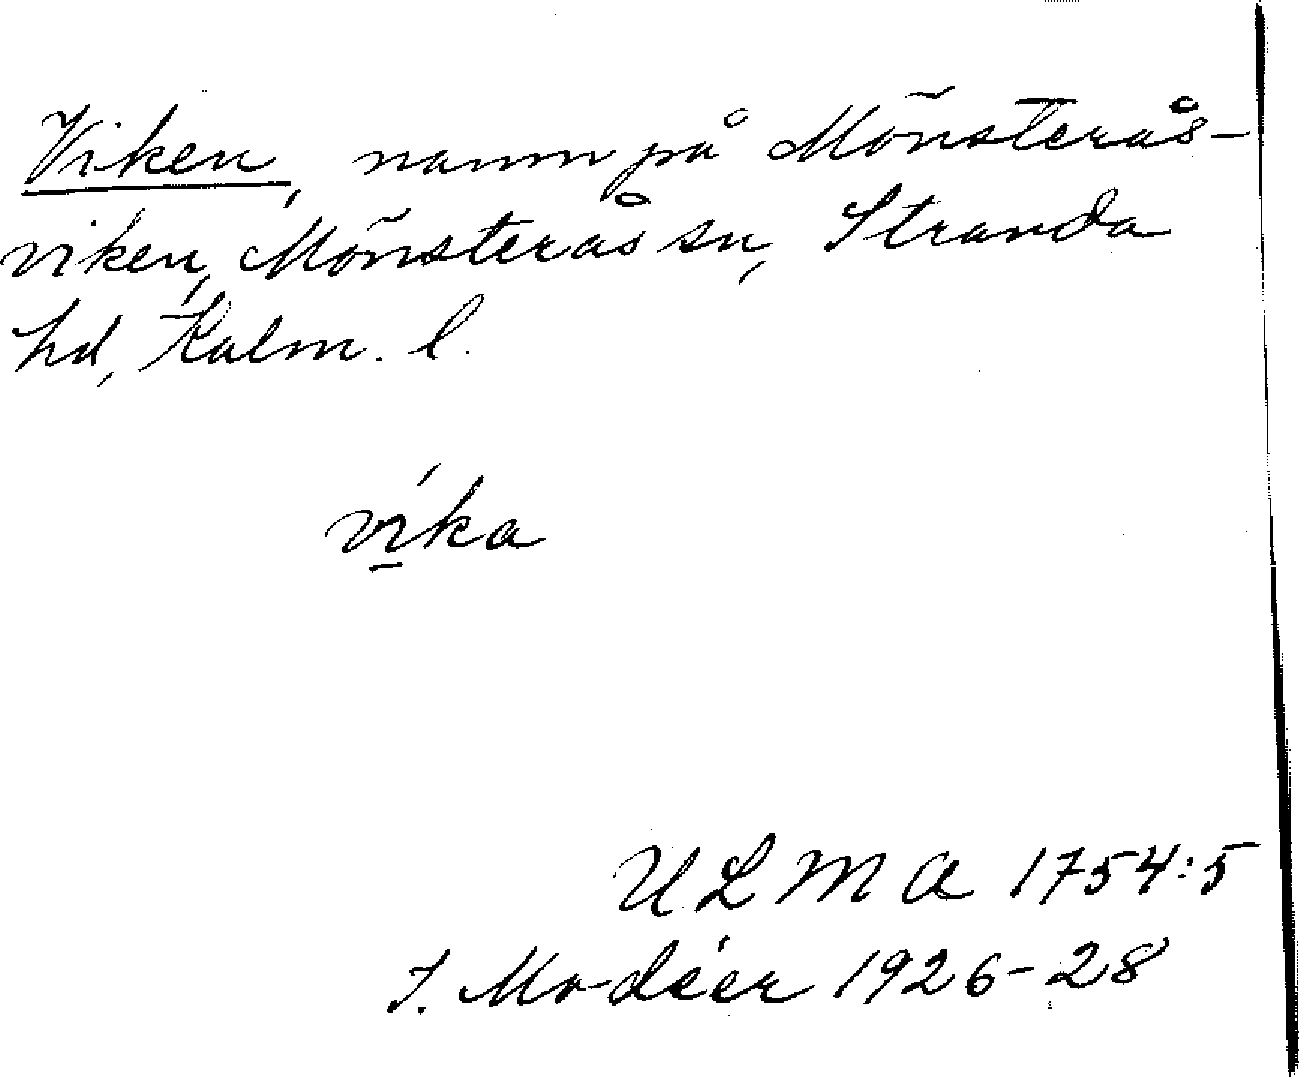 Viken, namn på Mönsterås-
viken, Mönsterås sn, Stranda
hd, Kalm. l.
víka
ULMA 1754:5
I. Modéer 1926-28